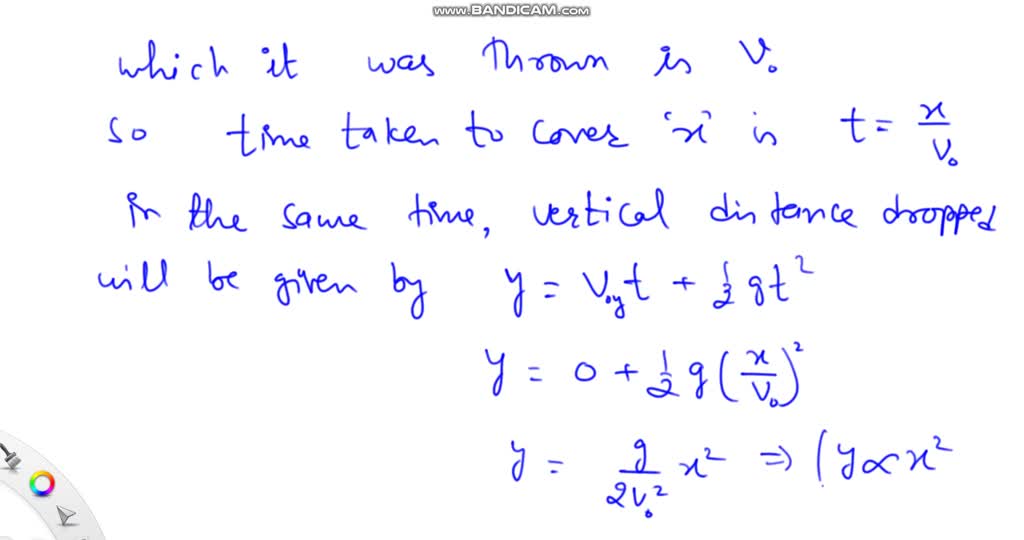 www.BANDICAM.com
which it was thrown is V₀
so time taken to cover 'x' is t = x/V₀
in the same time, vertical distance dropped
will be given by y = V₀yt + 1/2 gt²
y = 0 + 1/2 g(x/V₀)²
y = g/2V₀² x² ⇒ (y ∝ x²